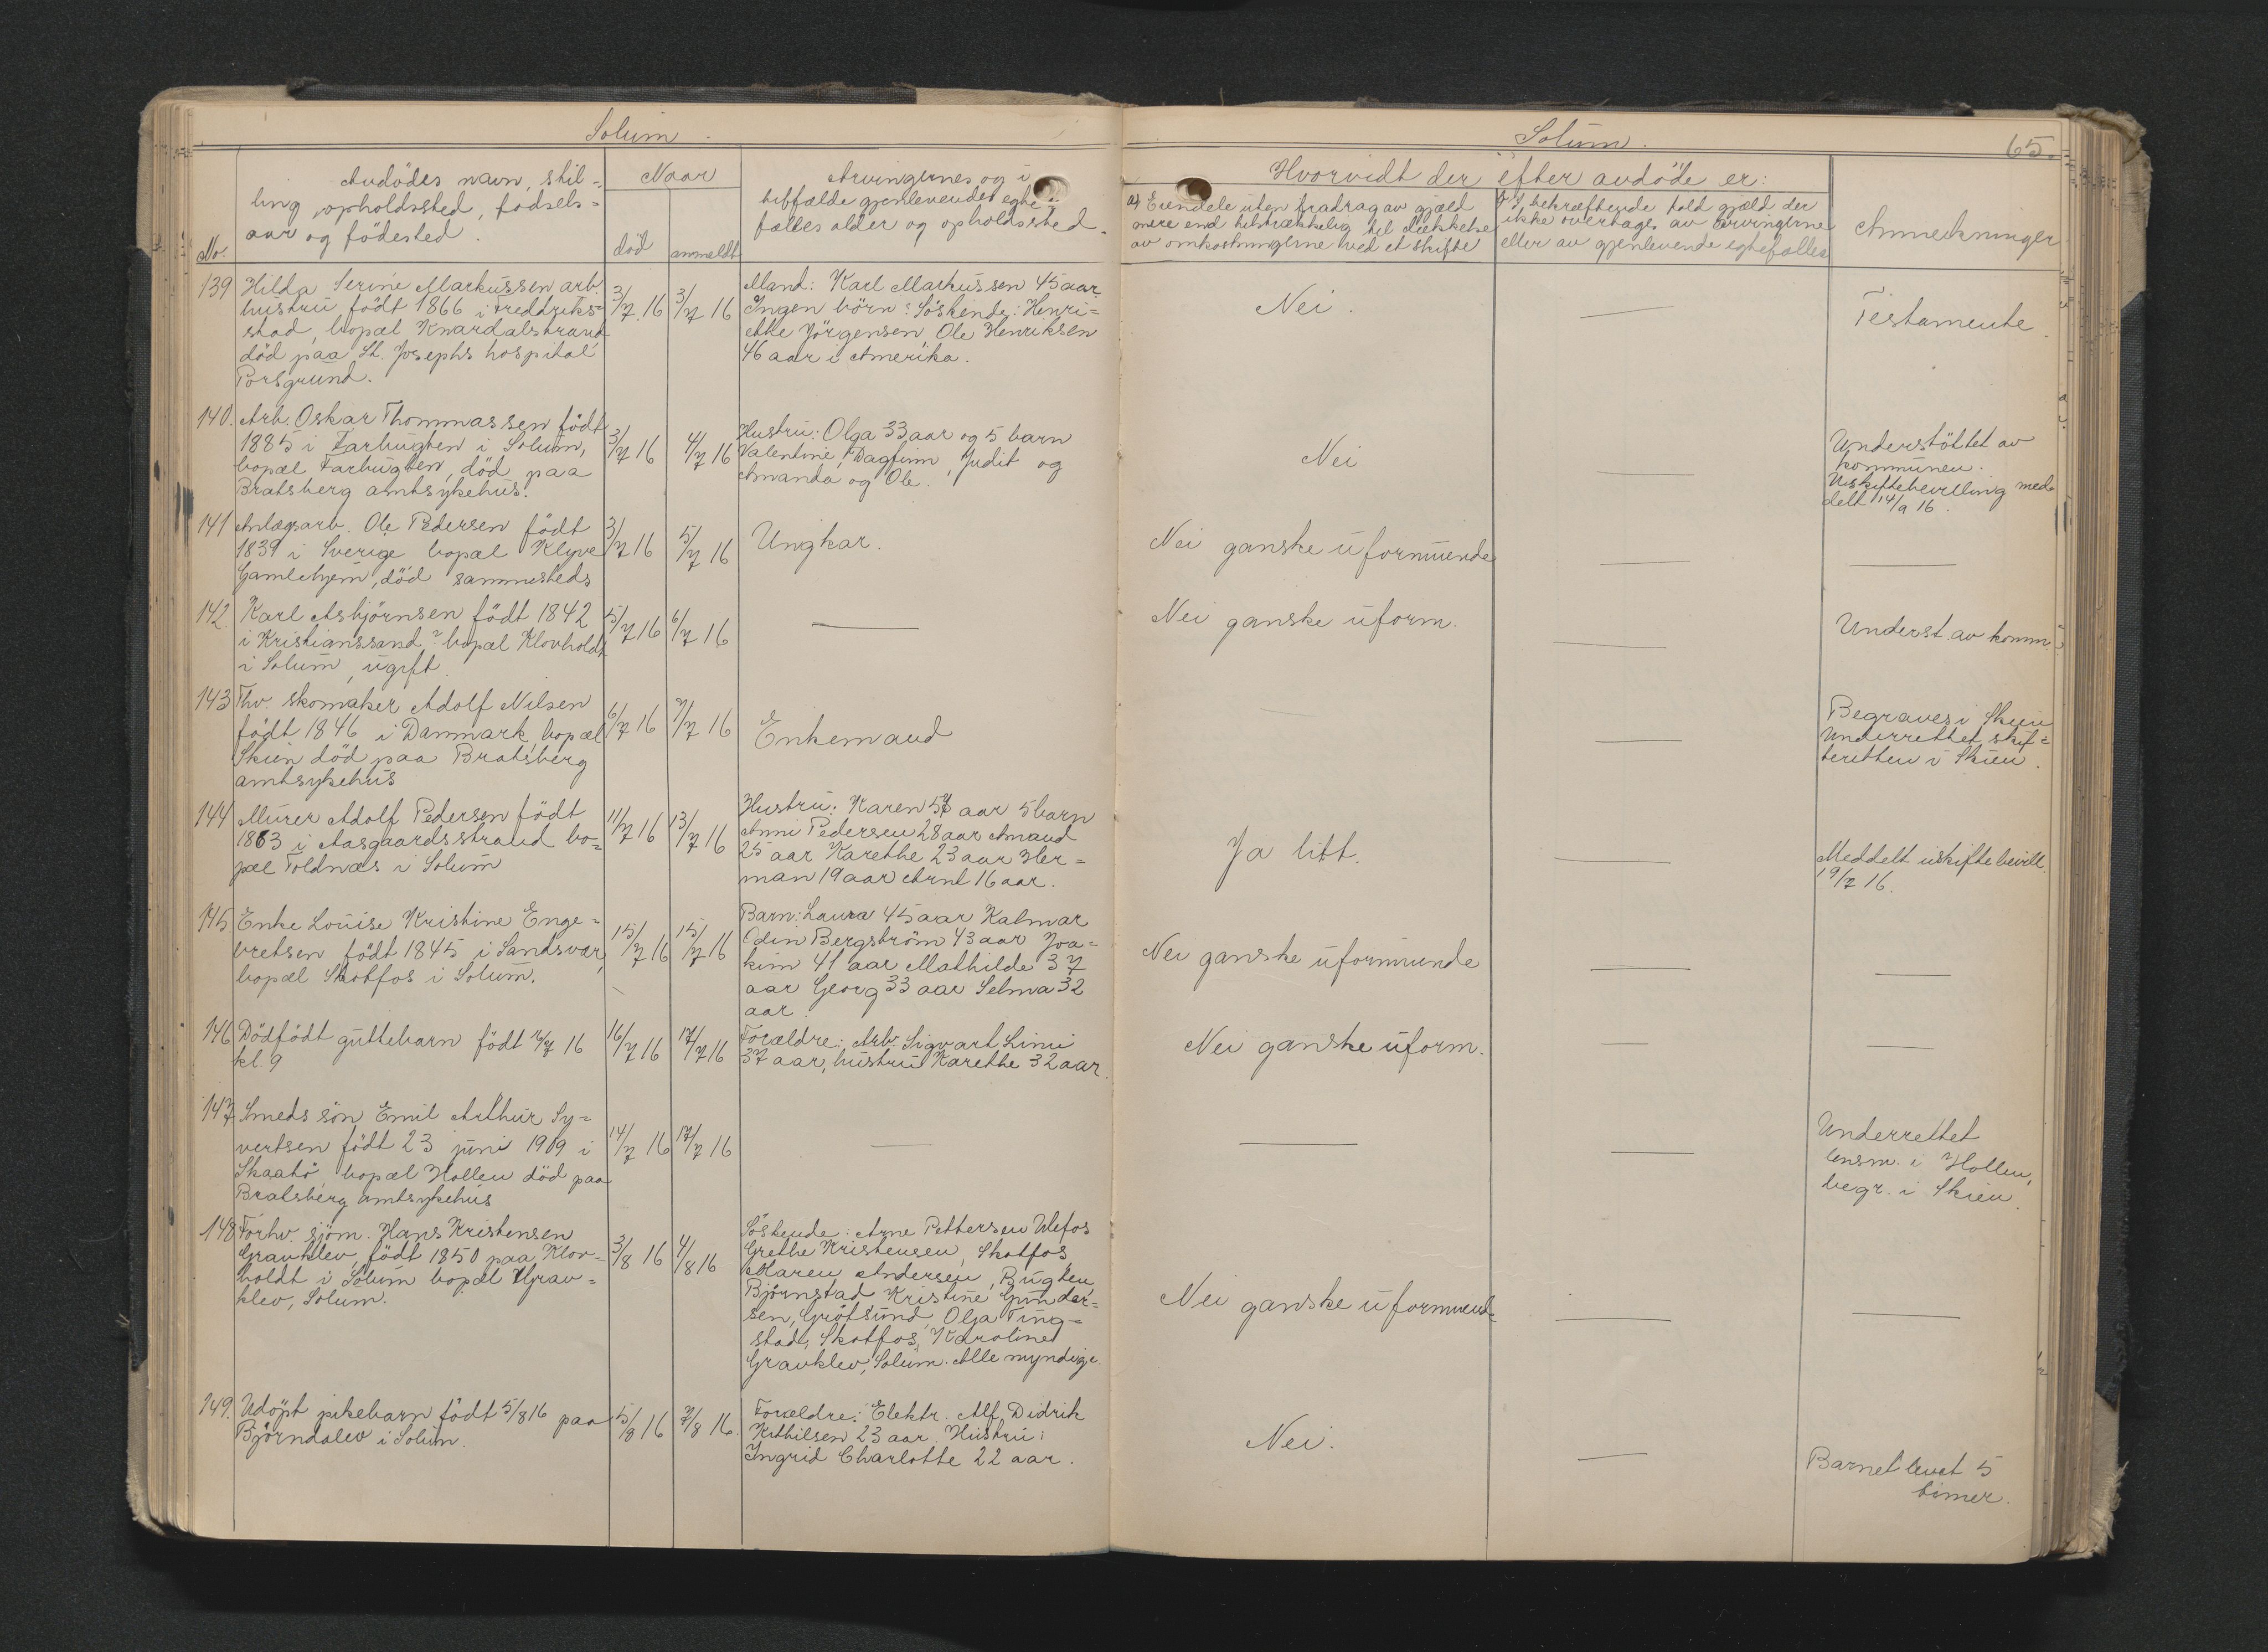 Solum
Solum.
65.
No.
Avdødes navn, stil=
ling, opholdssted, fødsels=
aar og fødested.
Naar
død
anmeldt
Arvingernes og i
tilfælde gjenlevendes egte=
fælles alder og opholdssted.
Hvorvidt der efter avdøde er:
a) Eiendele uten fradrag av gjæld
mere end tilstrækkelig til dækkelse
av omkostningerne ved et skifte
bekræftende fald gjæld der
ikke overtages av arvingerne
eller av gjenlevende egtefælles
Anmerkninger
139
Hilda Serine Markussen arb.
hustru født 1866 i Freddriks=
stad, bopæl Knardalstrand
død paa St. Josephs hospital
Porsgrund.
3/7 16
3/7 16
Mand: Karl Markussen 45 aar.
Ingen börn: Söskende: Henri=
ette Jörgensen, Ole Henriksen
46 aar i Amerika.
Nei.
Testamente.
140.
Arb. Oskar Thommassen født
1885 i Farbugten i Solum,
bopæl Farbugten, død paa
Bratsberg amtsykehus.
3/7 16
4/7 16
Hustru: Olga 33 aar og 5 barn
Valentine, Dagfinn, Judit og
Amanda og Ole.
Nei
Understöttet av
kommunen.
Uskiftebevilling med=
delt 14/9 16.
141
Anlægsarb. Ole Pedersen født
1839 i Sverige bopæl Klyve
Gamlehjem, död sammesteds
3/7 16
5/7 16
Ungkar.
Nei ganske uformuende
142.
Karl Asbjörnsen født 1842
i Kristianssand? bopæl Klovholdt
i Solum, ugift
5/7 16
6/7 16
Nei ganske uform.
Underst. av komm.
143
Fhv. skomaker Adolf Nilsen
født 1846 i Danmark bopæl
Skien død paa Bratsberg
amtsykehus
6/7 16
7/7 16
Enkemand
Begraves i Skien
Underrettet skif=
teretten i Skien.
144
Murer Adolf Pedersen født
1863 i Aasgaardsstrand bo=
pæl Toldnæs i Solum
11/7 16
13/7 16
Hustru: Karen 57 aar 5 barn
Anni Pedersen 28 aar Amand
25 aar Karethe 23 aar Her=
man 19 aar Arnt 16 aar.
Ja litt.
Meddelt uskiftebevill.
19/7 16.
145
Enke Louise Kristine Enge=
bretsen født 1845 i Sandsvær,
bopæl Skotfos i Solum.
15/7 16
15/7 16
Barn: Laura 45 aar Kalmar
Odin Bergström 43 aar Joa=
kim 41 aar Mathilde 37
aar Georg 33 aar Selma 32
aar
Nei ganske uformuende
146
Dödfödt guttebarn født 16/7 16
kl. 9
16/7 16
17/7 16
Forældre: Arb. Sigvart Linni
37 aar, hustru Karethe 32 aar.
Nei ganske uform.
147
Smeds sön Emil Arthur Sy=
vertsen født 23 juni 1909 i
Skaatö bopæl Hollen død paa
Bratsberg amtsykehus
14/7 16
17/7 16
Underrettet
lensm. i Hollen,
begr. i Skien.
148
Forhv. sjöm. Hans Kristensen
Gravklev, født 1850 paa Klov=
holdt i Solum bopæl Grav=
klev, Solum.
3/8 16
4/8 16
Söskende: Arne Pettersen Ulefos
Grethe Kristensen, Skotfos,
Maren Andersen, Bugten,
Björnstad Kristine Gunder=
sen, Grötsund, Olga Ting=
stad, Skotfos, Karoline
Gravklev, Solum. Alle myndige.
Nei ganske uformuend.
149.
Udöpt pikebarn født 5/8 16 paa
Björndalen i Solum.
5/8 16
7/8 16.
Forældre: Elektr. Alf Didrik
Kithilsen 23 aar. Hustru:
Ingrid Charlotte 22 aar.
Nei.
Barnet levet 5
timer.